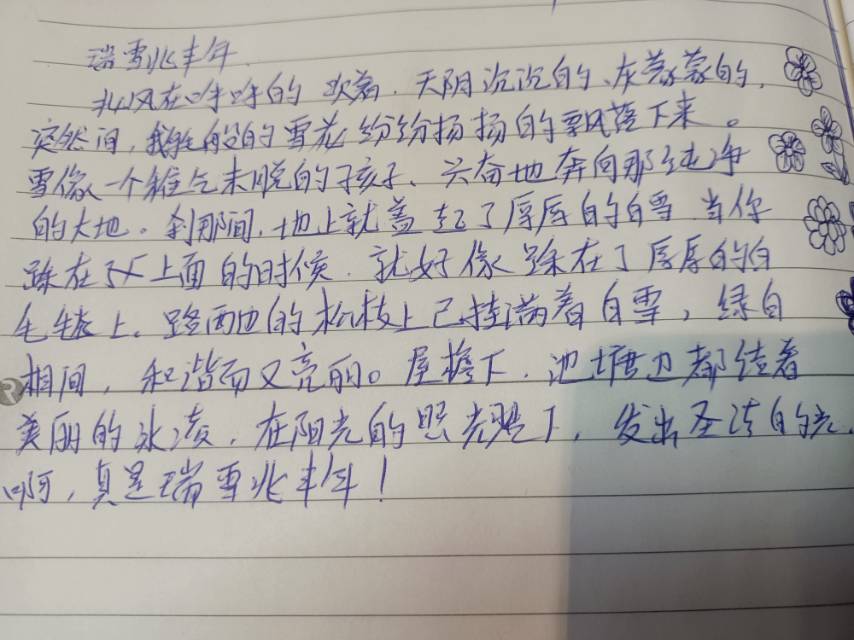 瑞雪兆丰年
北风在呼呼的吹着.天阴沉沉的、灰蒙蒙的,
突然间,鹅毛般的雪花纷纷扬扬的飘落下来。
雪像一个稚气未脱的孩子、兴奋地奔向那纯净
的大地。刹那间,地上就盖起了厚厚的白雪 当你
踩在上面的时候.就好像踩在了厚厚的白
毛毯上。路两边的松枝上已挂满着白雪,绿白
相间,和谐而又亮丽。屋檐下.池塘边都结着
美丽的冰凌,在阳光的照耀下,发出圣洁的光.
啊,真是瑞雪兆丰年!